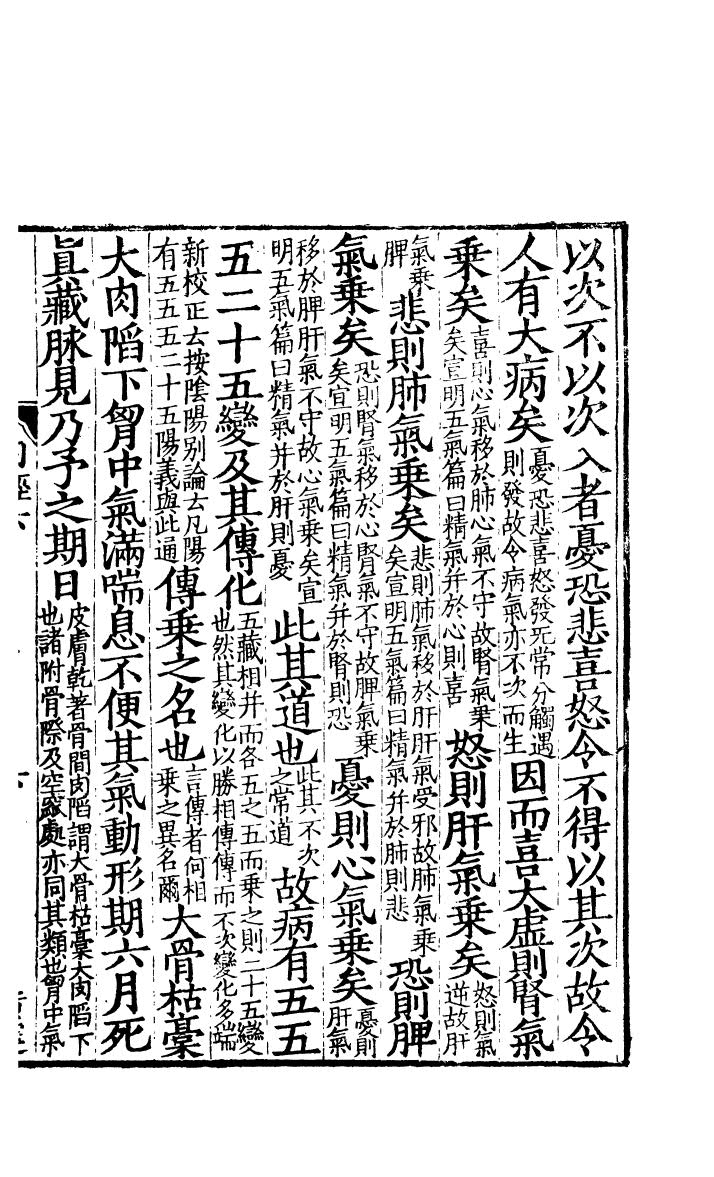 以次不以次入者憂恐悲喜怒令不得以其次故令
人有大病矣憂恐悲喜怒發无常分觸遇則發故令病氣亦不次而生因而喜大虛則腎氣
乘矣喜則心氣移於肺心氣不守故腎氣乘矣宣明五氣篇曰精氣并於心則喜怒則肝氣乘矣怒則氣逆故肝
氣乘脾悲則肺氣乘矣悲則肺氣移於肝肝氣受邪故肺氣乘矣宣明五氣篇曰精氣并於肺則悲恐則脾
氣乘矣恐則腎氣移於心腎氣不守故脾氣乘矣宣明五氣篇曰精氣并於腎則恐憂則心氣乘矣憂則肝氣
移於脾肝氣不守故心氣乘矣宣明五氣篇曰精氣并於肝則憂此其道也此其不次之常道故病有五五
五二十五變及其傳化五藏相并而各五之五而乘之則二十五變也然其變化以勝相傳傳而不次變化多端
新校正云按陰陽別論云凡陽有五五五二十五陽義與此通傳乘之名也言傳者何相乘之異名爾大骨枯槀
大肉陷下胷中氣滿喘息不便其氣動形期六月死
真藏脉見乃予之期日皮膚乾著骨間肉陷謂大骨枯槀大肉陷下也諸附骨際及空竅處亦同其類也胷中氣